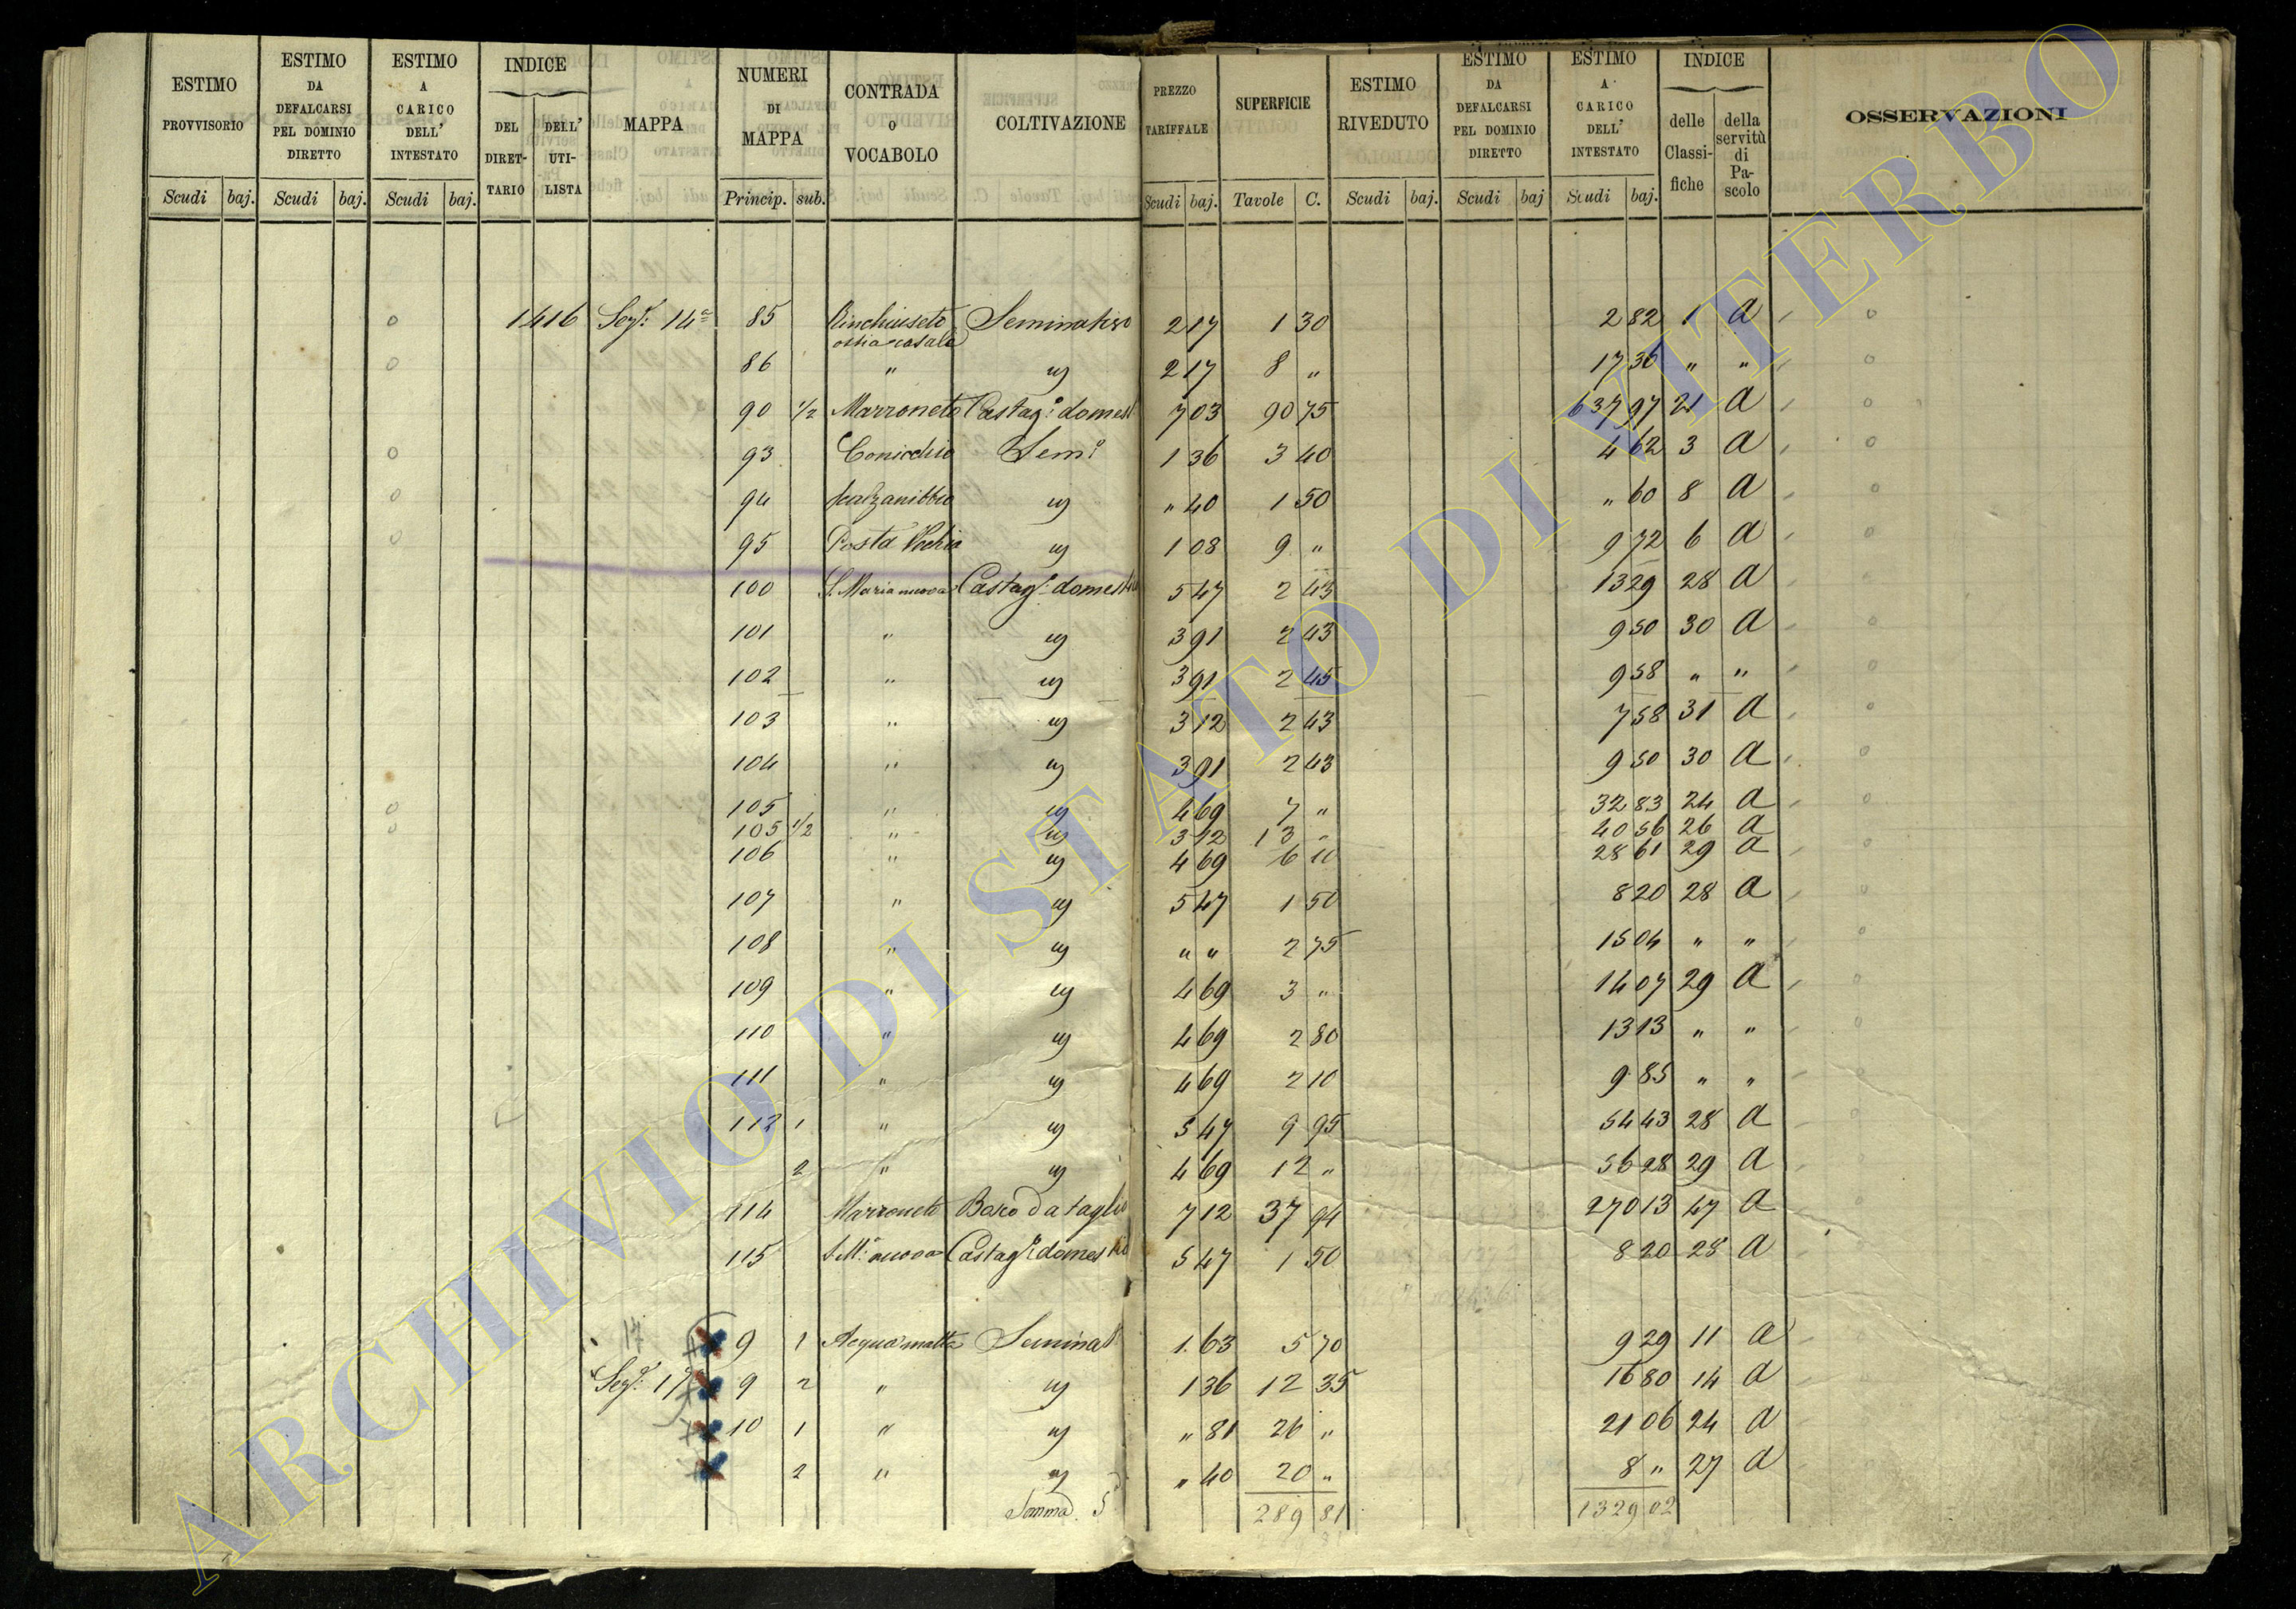 ESTIMO PROVVISORIO Scudi baj.
ESTIMO DA DEFALCARSI PEL DOMINIO DIRETTO Scudi baj.
ESTIMO A CARICO DELL' INTESTATO Scudi baj.
INDICE DEL DIRET- TARIO DELL' UTI- LISTA
MAPPA
NUMERI DI MAPPA Princip. sub.
CONTRADA O VOCABOLO
COLTIVAZIONE
PREZZO TARIFFALE Scudi baj.
SUPERFICIE Tavole C.
ESTIMO RIVEDUTO Scudi baj.
ESTIMO DA DEFALCARSI PEL DOMINIO DIRETTO Scudi baj
ESTIMO A CARICO DELL' INTESTATO Scudi baj.
INDICE delle Classi- fiche della servitù di Pa- scolo
OSSERVAZIONI
1416 Sez.e 14a 85 Rinchiuseto Seminativo 2 17 1 30 2 82 1 A
ossia casale
86 " " 2 17 8 " 17 36 " "
90 1/2 Marroneto Castag.o domest 7 03 90 75 637 97 21 A
93 Conicchio Sem.o 1 36 3 40 4 62 3 A
94 Scalzanibbio " " 40 1 50 " 60 8 A
95 Posta Vechia " 1 08 9 " 9 72 6 A
100 S. Maria nuova Castag.o domestico 5 47 2 43 13 29 28 A
101 " " 3 91 2 43 9 50 30 A
102 " " 3 91 2 45 9 58 " "
103 " " 3 12 2 43 7 58 31 A
104 " " 3 91 2 43 9 50 30 A
105 " " 4 69 7 " 32 83 24 A
105 1/2 " " 3 12 13 " 40 56 26 A
106 " " 4 69 6 10 28 61 29 A
107 " " 5 47 1 50 8 20 28 A
108 " " " " 2 75 15 04 " "
109 " " 4 69 3 " 14 07 29 A
110 " " 4 69 2 80 13 13 " "
111 " " 4 69 2 10 9 85 " "
112 1 " " 5 47 9 95 54 43 28 A
2 " " 4 69 12 " 56 28 29 A
114 Marroneto Bosco da taglio 7 12 37 94 270 13 47 A
115 S. M.a nuova Castag.o domestico 5 47 1 50 8 20 28 A
17 9 1 Acqua matta Seminat.o 1 63 5 70 9 29 11 A
Sez.e 17 9 2 " " 1 36 12 35 16 80 14 A
10 1 " " " 81 26 " 21 06 24 A
2 " " " 40 20 " 8 " 27 A
Somma S 289 81 1329 02
ARCHIVIO DI STATO DI VITERBO